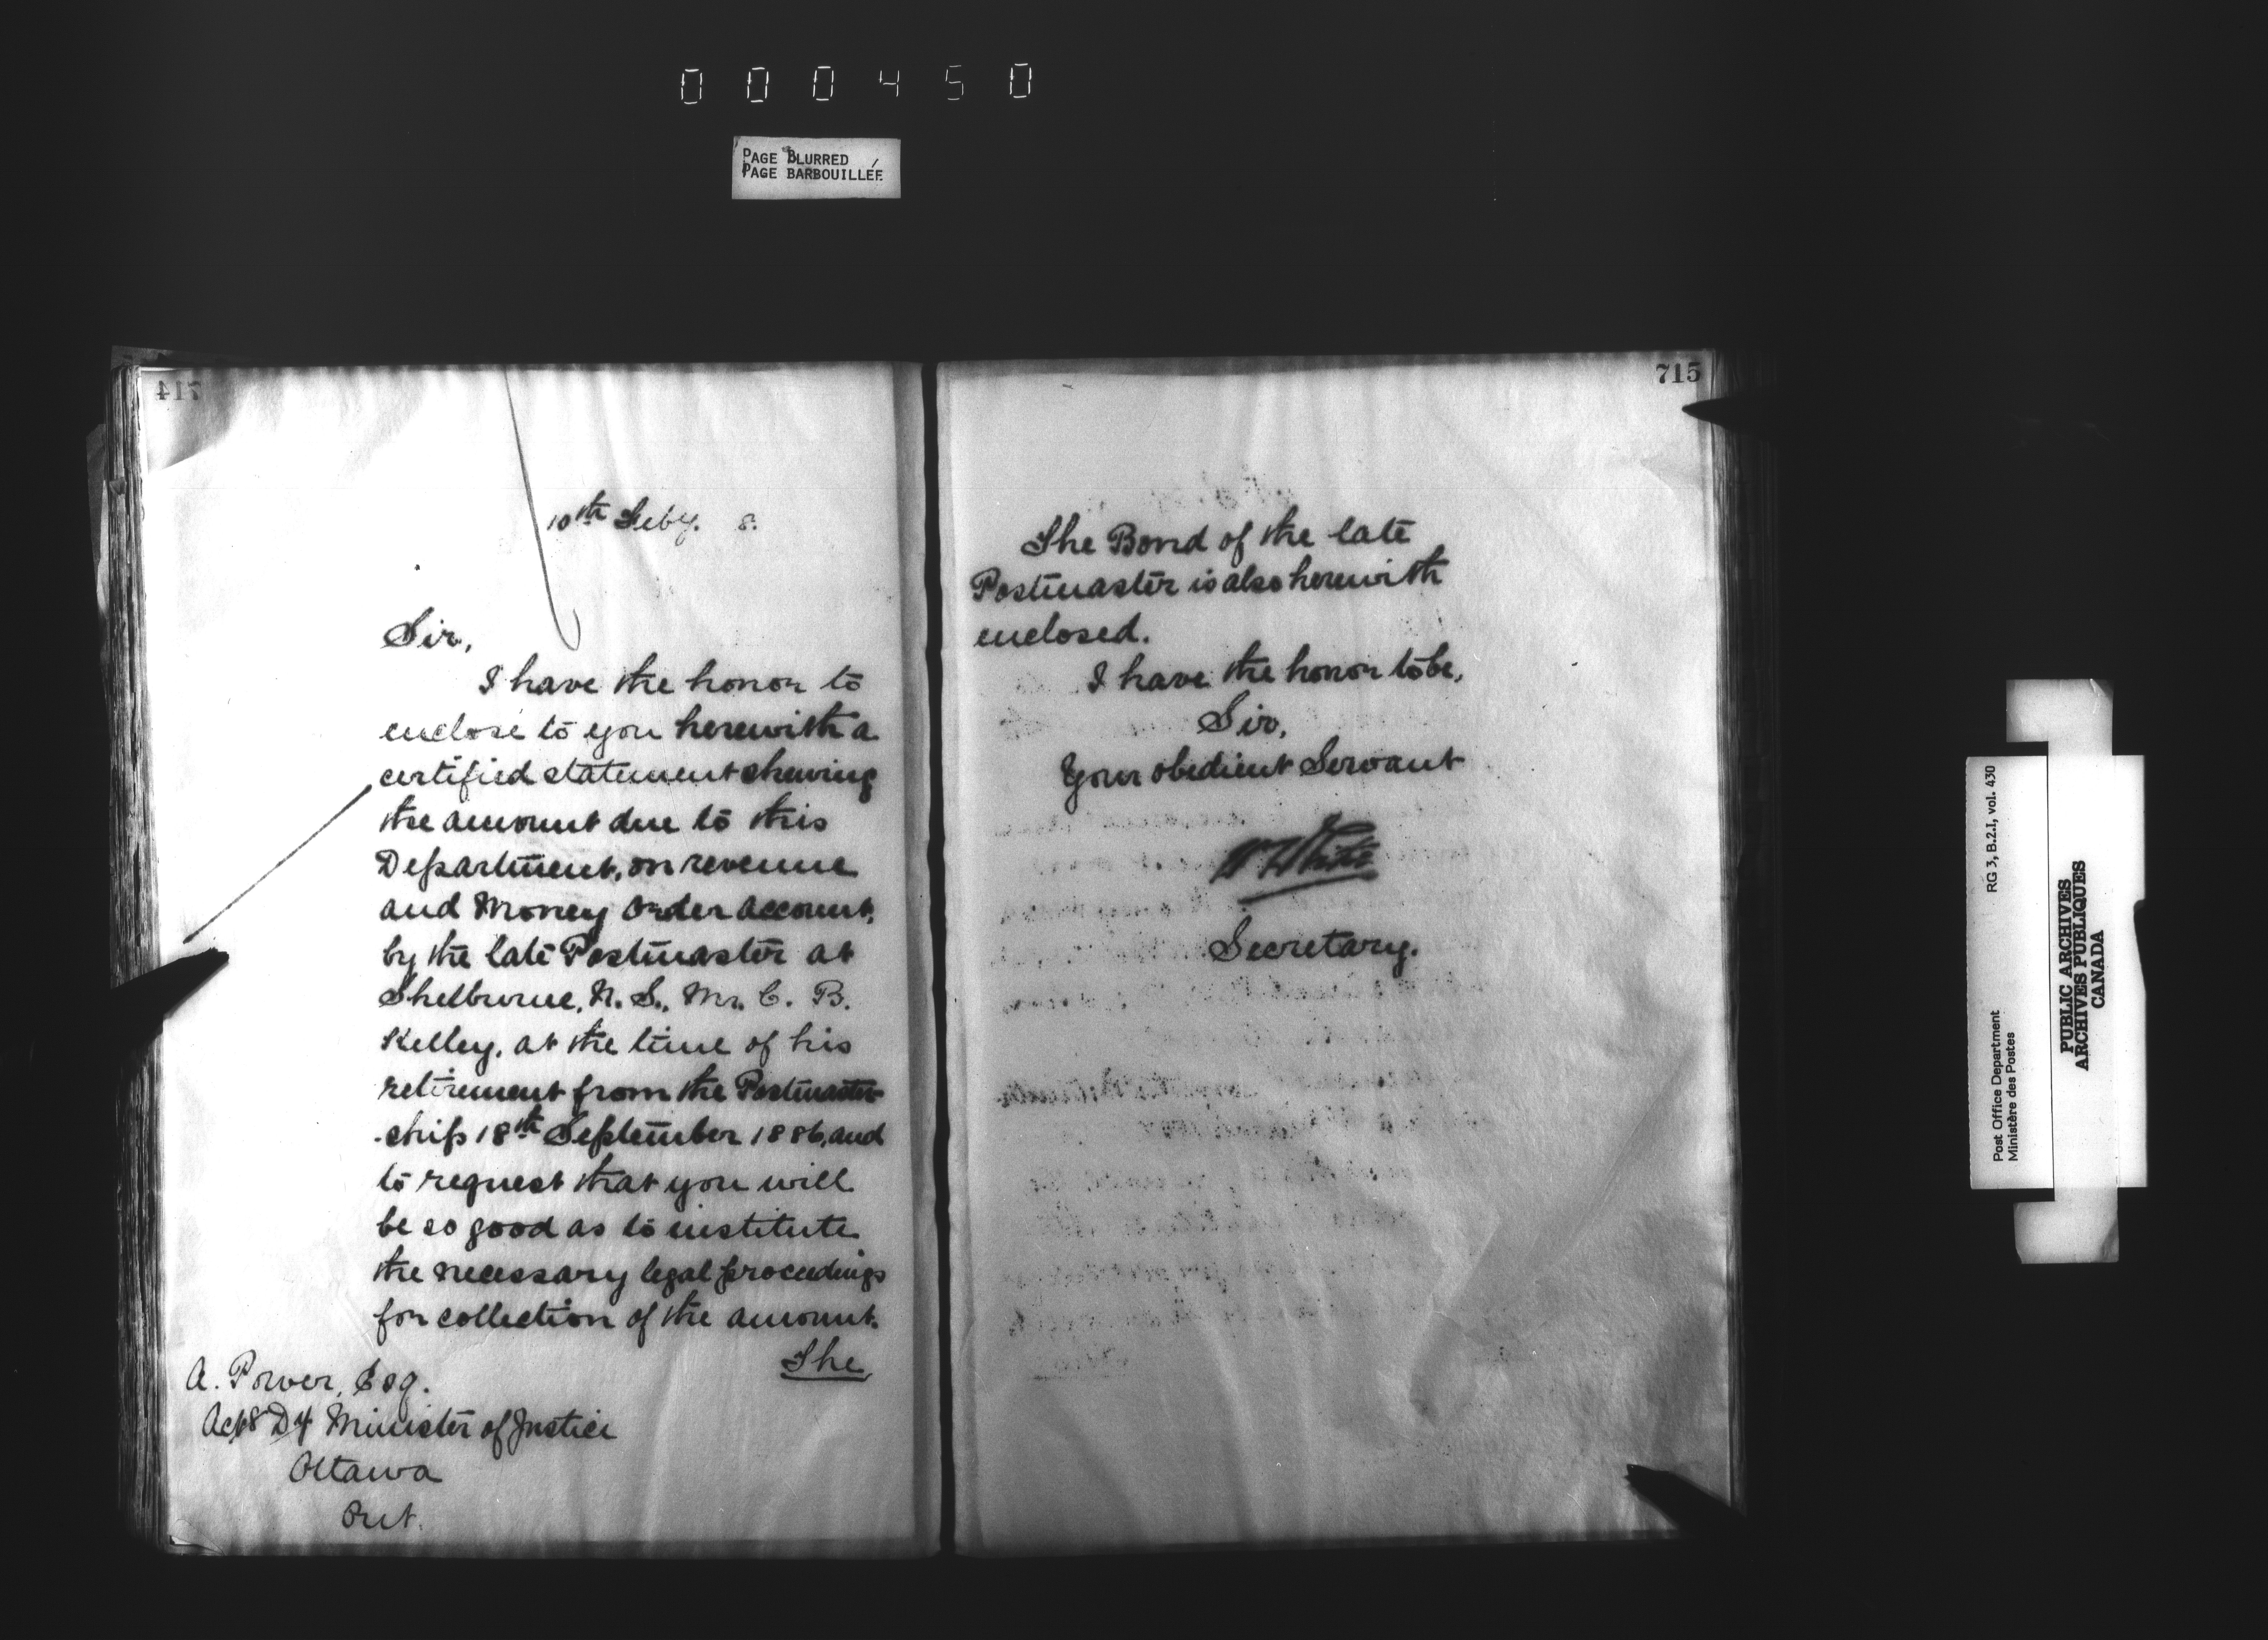 000450
PAGE BLURRED
PAGE BARBOUILLÉE
714
10th Feby. 8.
Sir,
I have the honor to
enclose to you herewith a
certified statement shewing
the amount due to this
Department, on revenue
and Money Order account,
by the late Postmaster at
Shelburne, N. S., Mr. C. B.
Kelley, at the time of his
retirement from the Postmaster-
-ship 18th September 1886, and
to request that you will
be so good as to institute
the necessary legal proceedings
for collection of the amount.
The
A. Power, Esq.
Actg Dy Minister of Justice
Ottawa
Ont.
715
The Bond of the late
Postmaster is also herewith
enclosed.
I have the honor to be,
Sir,
Your obedient Servant
W White
Secretary.
Post Office Department
Ministère des Postes
RG 3, B.2.I, vol. 430
PUBLIC ARCHIVES
ARCHIVES PUBLIQUES
CANADA